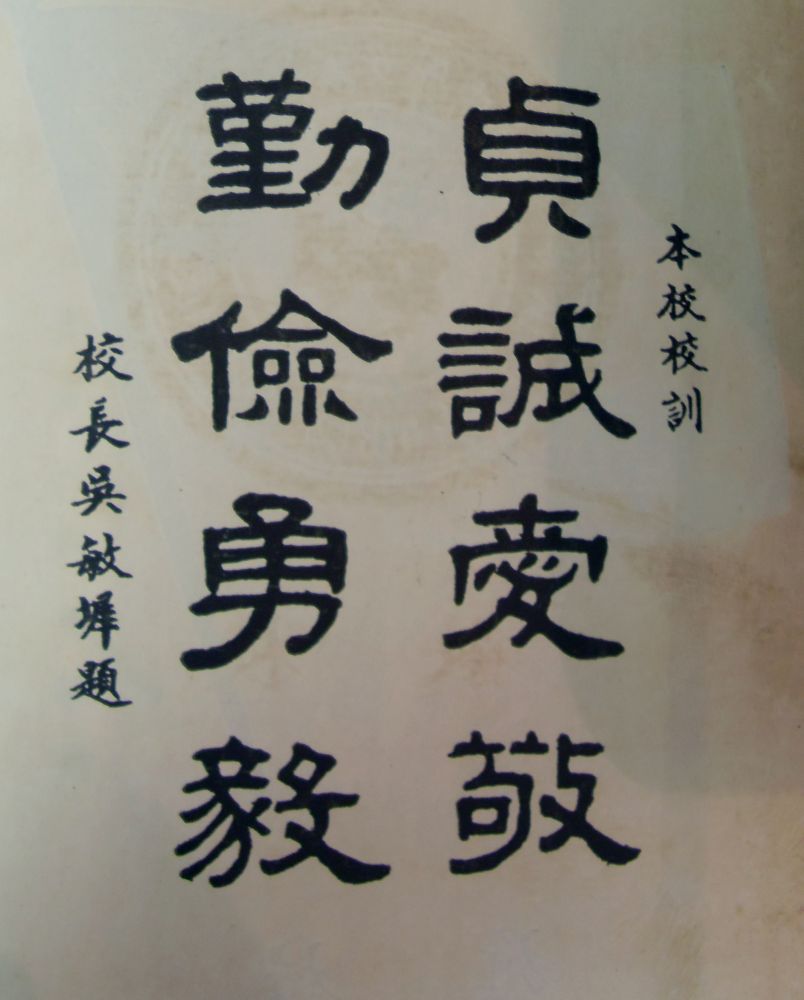 本校校訓
貞誠愛敬
勤儉勇毅
校長吳敏墀題